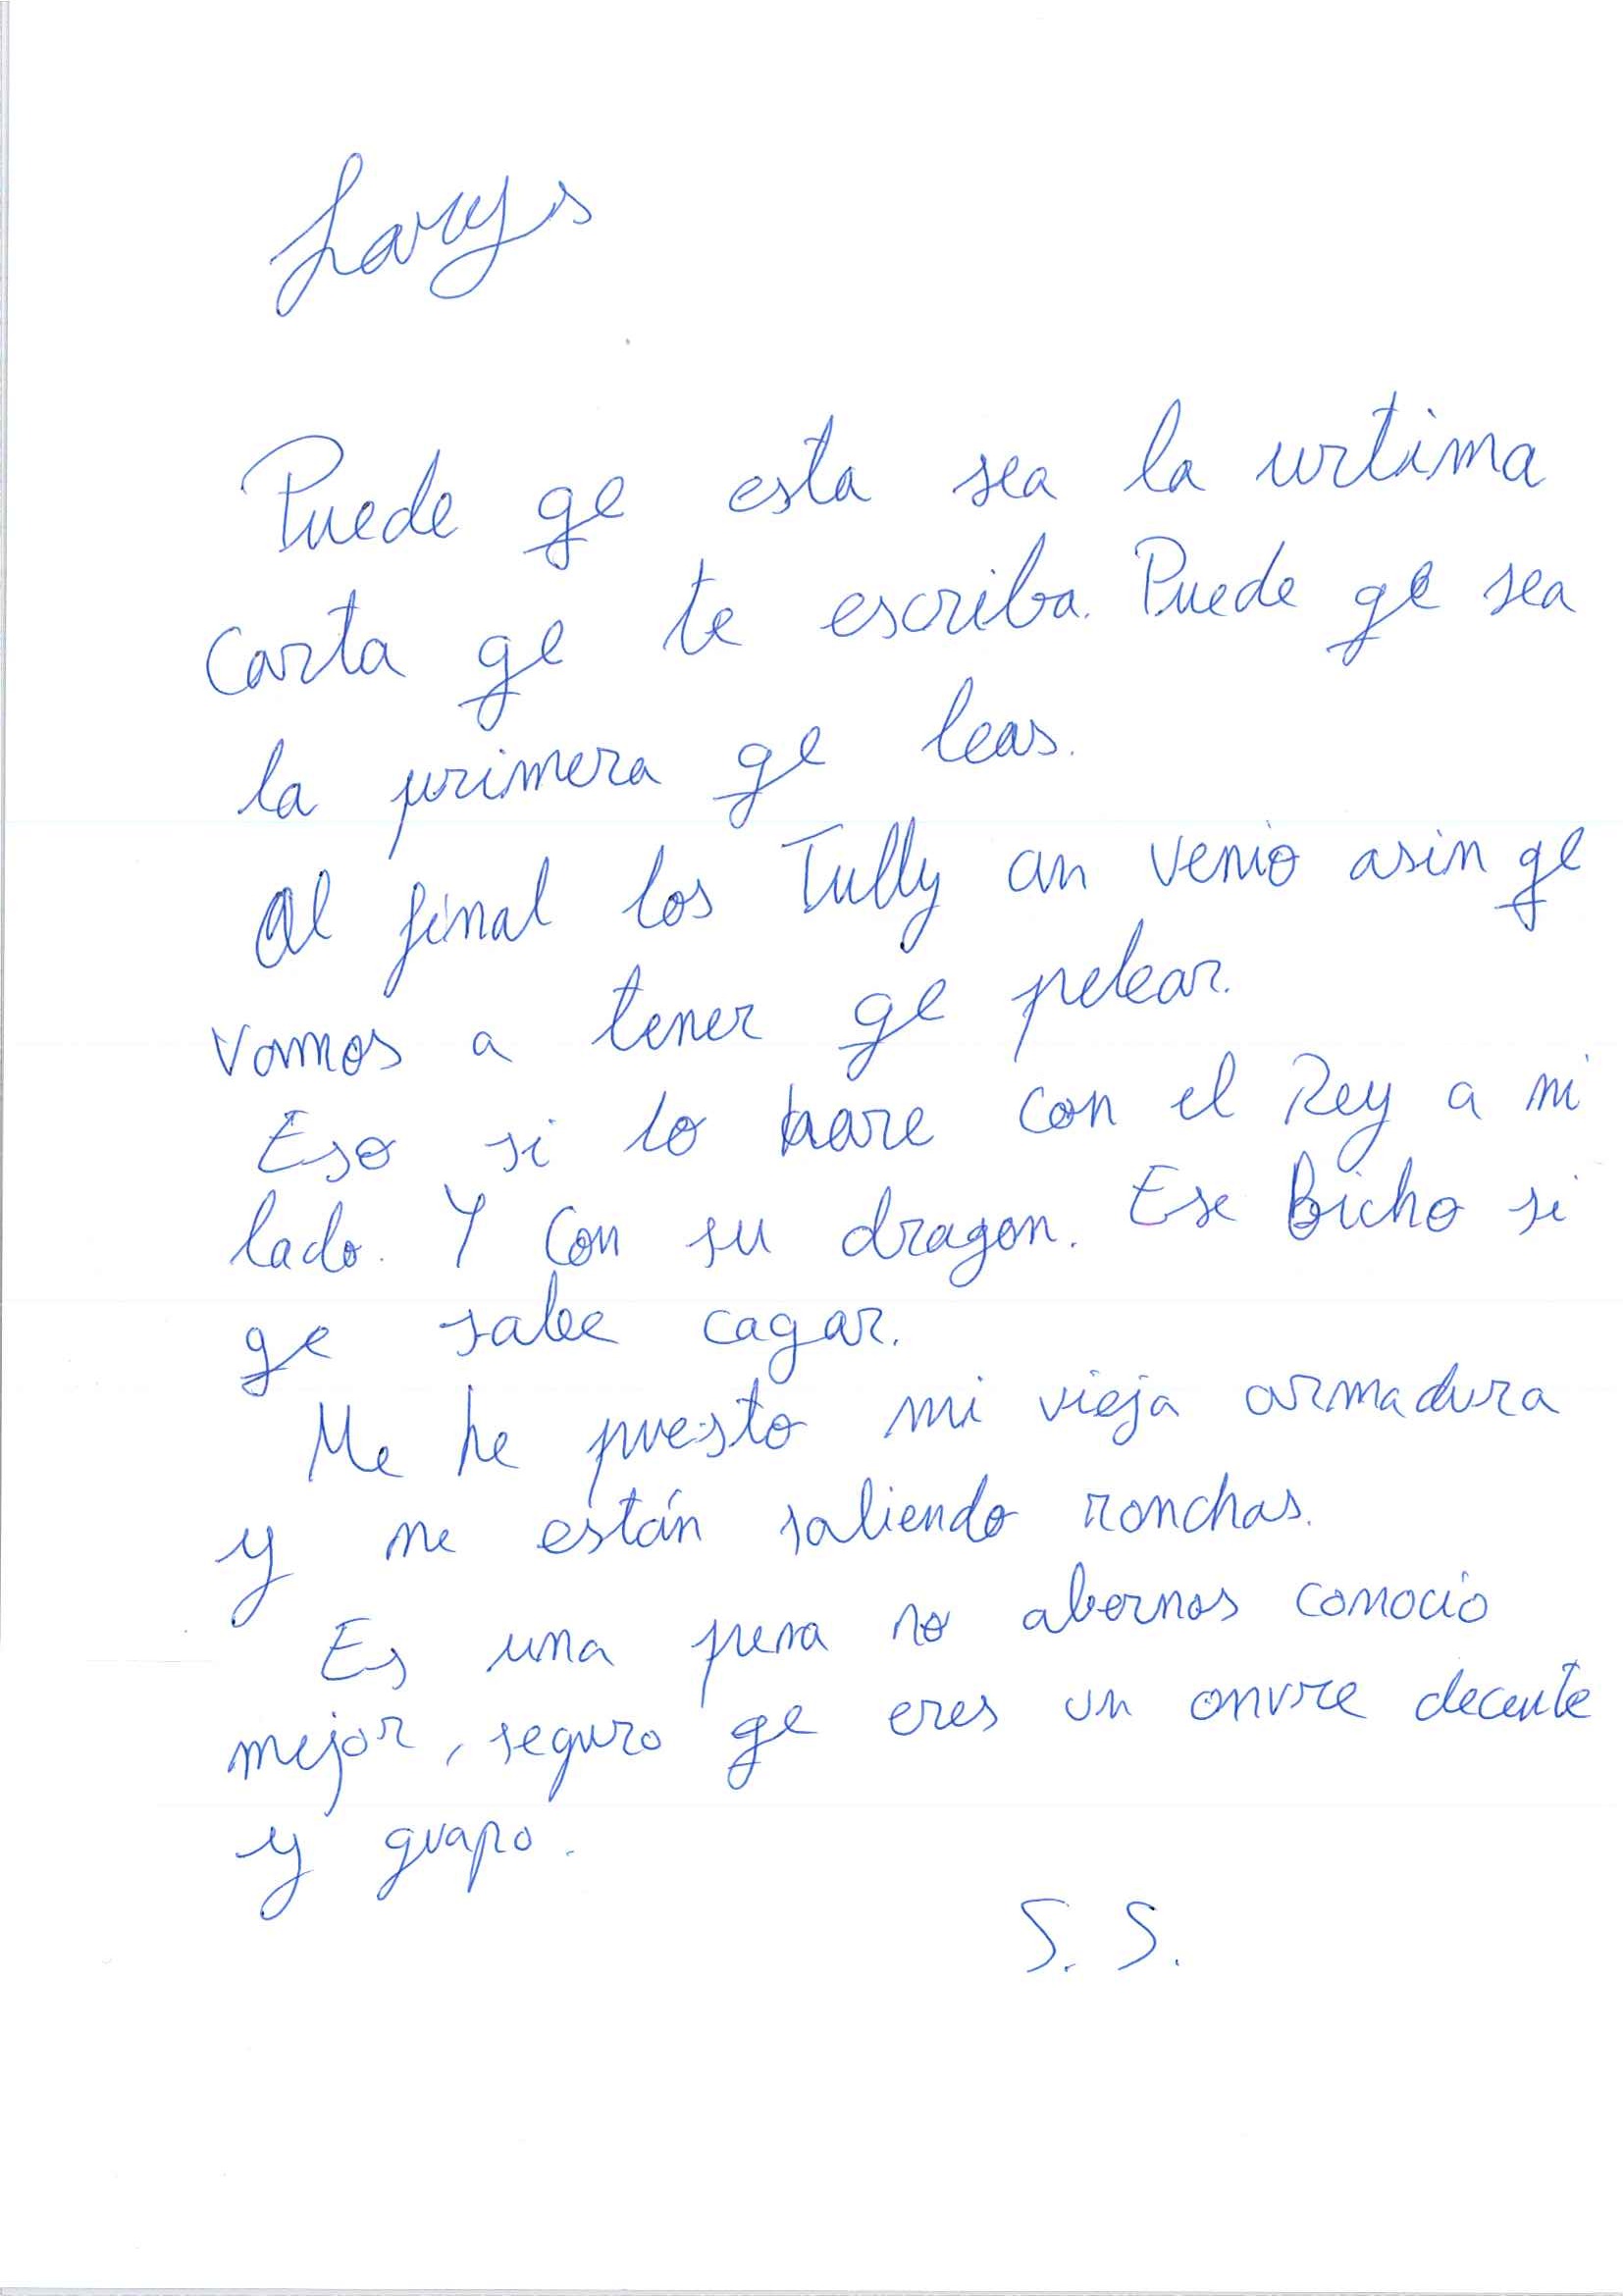 Larys
Puede qe esta sea la urtima
carta qe te escriba. Puede qe sea
la primera qe leas.
Al final los Tully an venio asin qe
vamos a tener qe pelear.
Eso si lo hare con el Rey a mi
lado. Y con su dragon. Ese bicho si
qe sabe cagar.
Me he puesto mi vieja armadura
y me están saliendo ronchas.
Es una pena no abernos conocio
mejor, seguro qe eres un onvre decente
y guapo.
S. S.